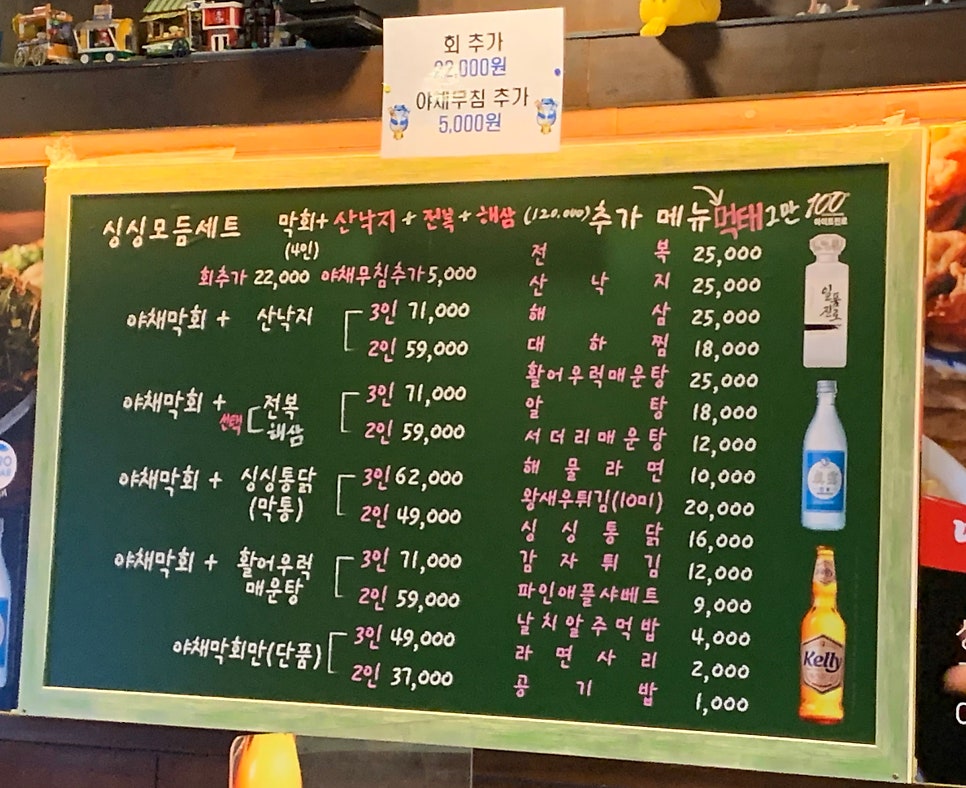 회 추가
22,000원
야채무침 추가
5,000원
싱싱모듬세트 막회+산낙지+전복+해삼(120,000)
(4인)
회추가 22,000 야채무침추가 5,000
야채막회 + 산낙지
3인 71,000
2인 59,000
야채막회 + 선택 전복 해삼
3인 71,000
2인 59,000
야채막회 + 싱싱통닭
(막통)
3인 62,000
2인 49,000
야채막회 + 활어우럭
매운탕
3인 71,000
2인 59,000
야채막회만(단품)
3인 49,000
2인 37,000
추가 메뉴 먹태 2만
전복 25,000
산낙지 25,000
해삼 25,000
대하찜 18,000
활어우럭매운탕 25,000
알탕 18,000
서더리매운탕 12,000
해물라면 10,000
왕새우튀김(10미) 20,000
싱싱통닭 16,000
감자튀김 12,000
파인애플샤베트 9,000
날치알주먹밥 4,000
라면사리 2,000
공기밥 1,000
100
하이트진로
일품
진로
Kelly